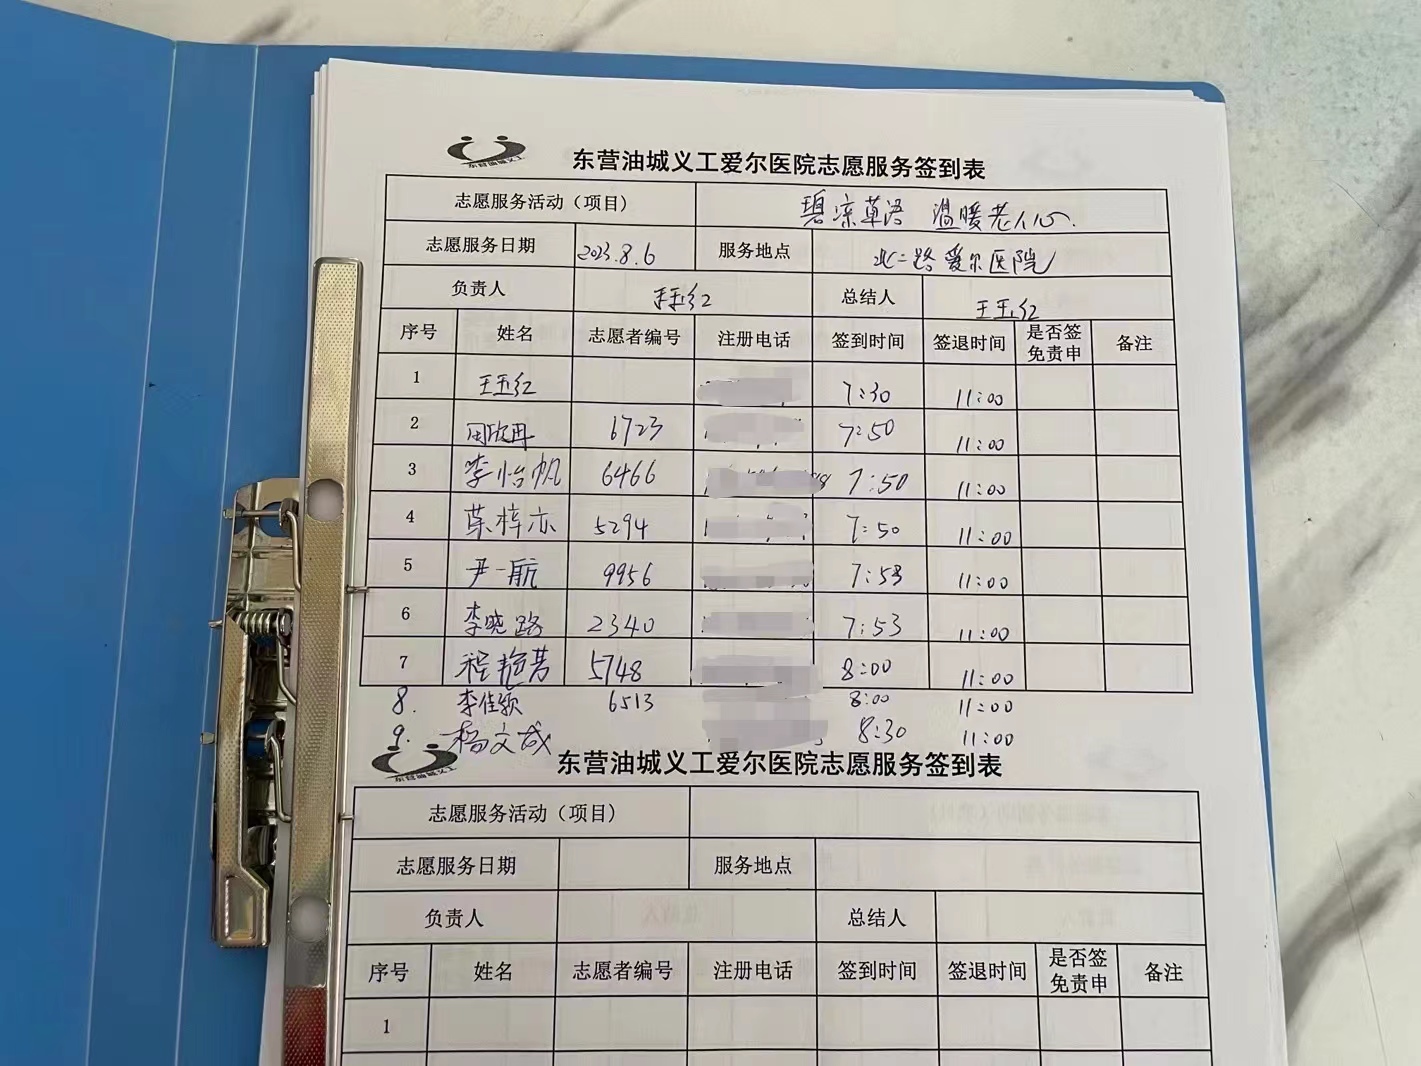 东营油城义工
东营油城义工爱尔医院志愿服务签到表
志愿服务活动（项目） 碧凉草语 温暖老人心.
志愿服务日期 2023.8.6 服务地点 北二路爱尔医院
负责人 王玉红 总结人 王玉红
序号 姓名 志愿者编号 注册电话 签到时间 签退时间 是否签免责申 备注
1 王玉红 7:30 11:00
2 周欣冉 6723 7:50 11:00
3 李怡帆 6466 7:50 11:00
4 梓亦 5294 7:50 11:00
5 尹一航 9956 7:53 11:00
6 李晓路 2340 7:53 11:00
7 程艳芳 5748 8:00 11:00
8. 李佳颖 6513 8:00 11:00
9. 杨文成 8:30 11:00
东营油城义工
东营油城义工爱尔医院志愿服务签到表
志愿服务活动（项目）
志愿服务日期 服务地点
负责人 总结人
序号 姓名 志愿者编号 注册电话 签到时间 签退时间 是否签免责申 备注
1